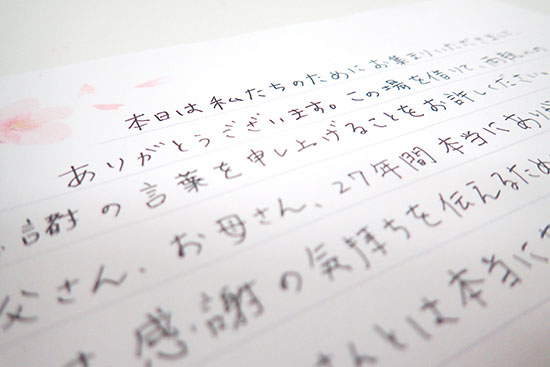 本日は私たちのためにお集まりいただきまして
ありがとうございます。この場を借りて両親への
謝の言葉を申し上げることをお許しください。
父さん、お母さん、27年間本当にあり
感謝の気持ちを伝えるため
さんとは本当に